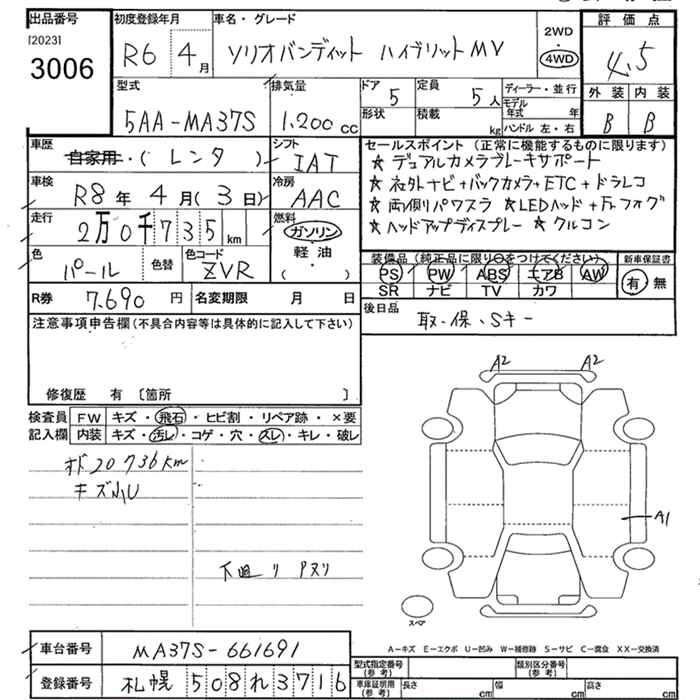 出品番号
[2023]
3006
初度登録年月
R6 4月
車名・グレード
ソリオバンディット ハイブリットMV
2WD
4WD
評価点
4.5
外装 内装
B B
型式
5AA-MA37S
排気量
1.200 cc
ドア
5
定員
5人
形状
積載
kg
ディーラー・並行
モデル年式 年
ハンドル 左・右
車歴
自家用・(レンタ)
シフト
IAT
車検
R8年 4月(3日)
冷房
AAC
走行
2万0千735km
燃料
ガソリン
軽油
( )
色
パール
色替
色コード
ZVR
R券 7.690円
名変期限 月 日
セールスポイント(正常に機能するものに限ります)
★デュアルカメラブレーキサポート
★社外ナビ+バックカメラ+ETC+ドラレコ
★両側パワスラ ★LEDヘッド+Frフォグ
★ヘッドアップディスプレー ★クルコン
装備品(純正品に限り○をつけてください)
新車保証書
PS PW ABS エアB AW
有・無
SR ナビ TV カワ
後日品
取・保、Sキー
注意事項申告欄(不具合内容等は具体的に記入して下さい)
修復歴 有〔箇所 〕
検査員
記入欄
FW キズ・飛石・ヒビ割・リペア跡・×要
内装 キズ・汚レ・コゲ・穴・スレ・キレ・破レ
オド20736km
キズ小U
下廻リ Pヌリ
A2 A2
A1
スペア
車台番号 MA37S-661691
登録番号 札幌508れ3716
A-キズ E-エクボ U-凹み W-補修跡 S-サビ C-腐食 XX-交換済
型式指定番号
(参考)
類別区分番号
(参考)
車庫証明用
(参考)
長さ cm 幅 cm 高さ cm